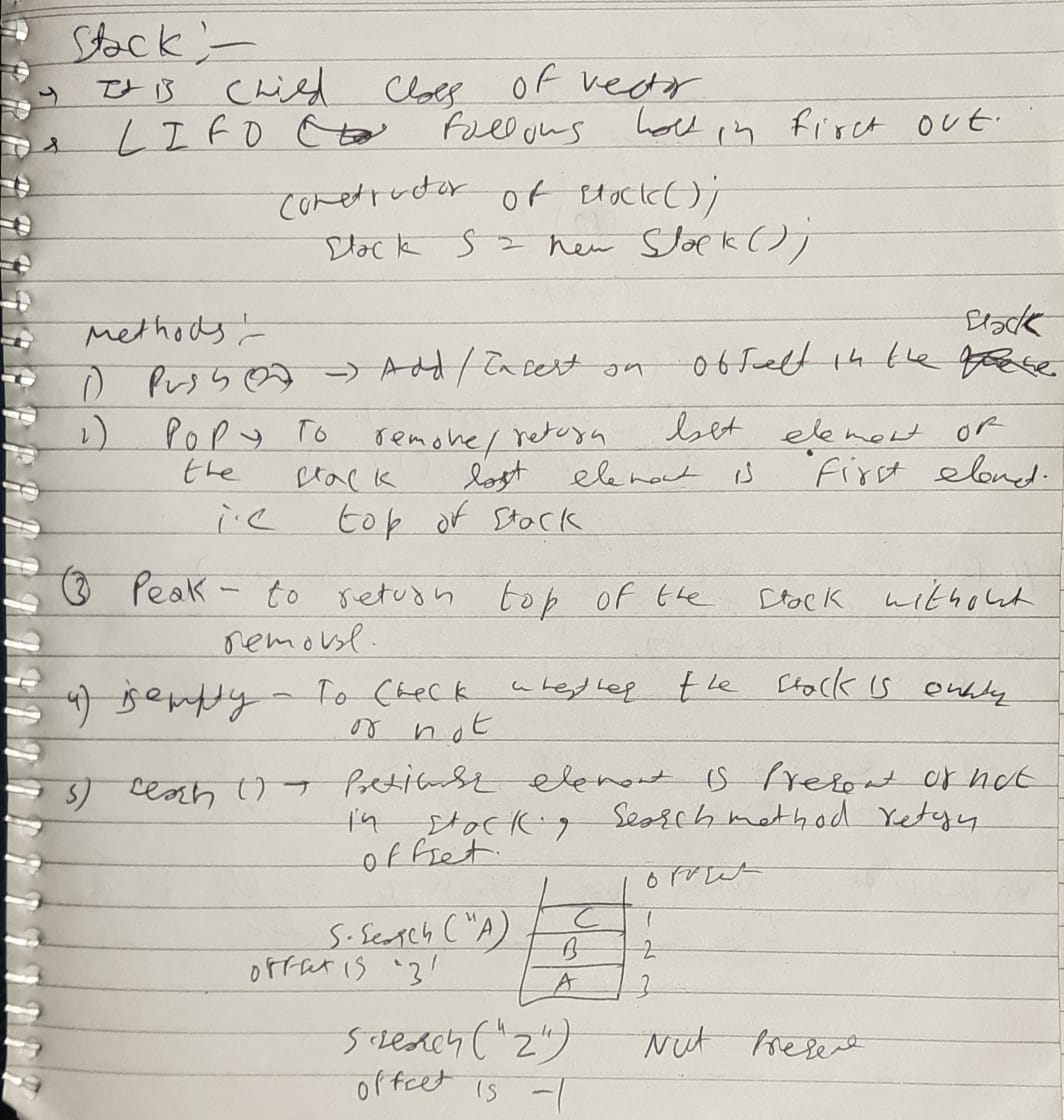 Stack :-
→ It is child class of vector
→ LIFO follows last in first out.
constructor of stack();
Stack S = new Stack();
Methods :-
stack
1) Push → Add/Insert an object in the
2) POP → To remove/return last element of
the stack last element is first element.
i.e top of stack
③ Peak - to return top of the stack without
removal.
4) isempty - To check whether the stack is empty
or not
5) search () → Particular element is present or not
in stack., Search method return
offset.
offset
C 1
S.Search ("A) B 2
offset is '3' A 3
S.search ("Z") Not present
offset is -1